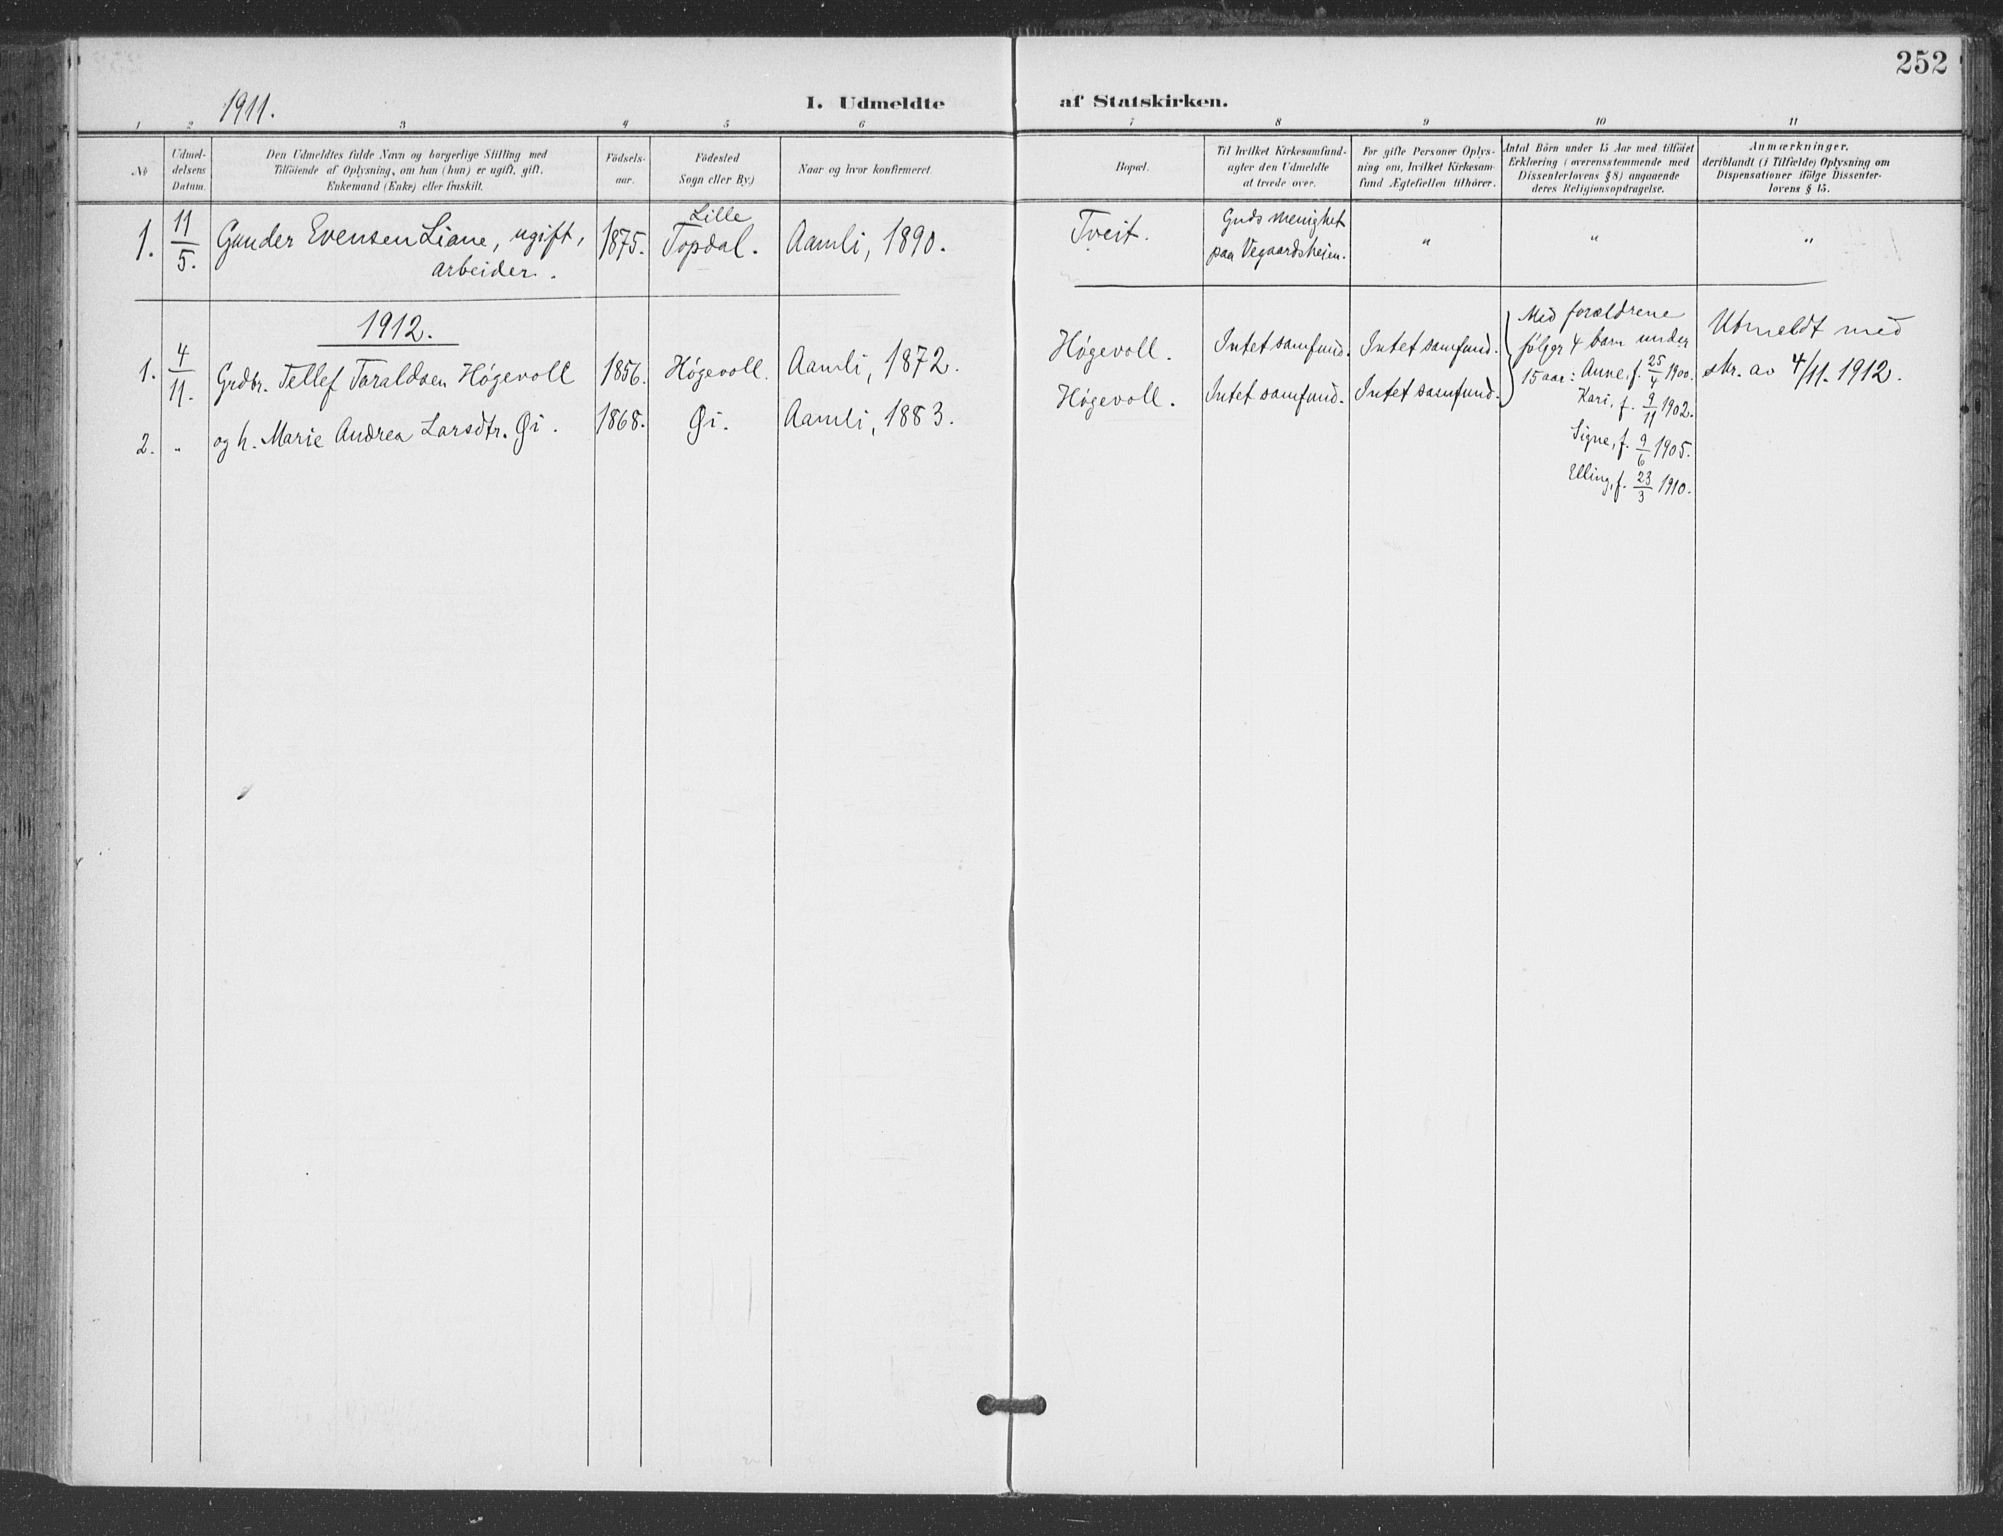 252
1911.
I. Udmeldte af Statskirken.
1 2 3 4 5 6 7 8 9 10 11
№
Udmel-
delsens
Datum.
Den Udmeldtes fulde Navn og borgerlige Stilling med
Tilföiende af Oplysning, om han (hun) er ugift, gift,
Enkemand (Enke) eller fraskilt.
Födsels-
aar.
Födested
Sogn eller By)
Naar og hvor konfirmeret.
Bopæl.
Til hvilket Kirkesamfund-
agter den Udmeldte
at træde over.
For gifte Personer Oplys-
ning om, hvilket Kirkesam-
fund Ægtefællen tilhörer.
Antal Börn under 15 Aar med tilföiet
Erklæring (overensstemmende med
Dissenterlovens § 8) angaaende
deres Religionsopdragelse.
Anmærkninger.
deriblandt (i Tilfælde) Oplysning om
Dispensationer ifölge Dissenter-
lovens § 15.
1.
11/5.
Gunder Evensen Liane, ugift,
arbeider.
1875.
Lille
Topdal.
Aamli, 1890.
Tveit.
Guds menighet
paa Vegaardsheien.
"
"
"
1912.
1.
4/11.
Grdbr. Tellef Taraldsen Høgevoll
1856.
Høgevoll.
Aamli, 1872.
Høgevoll.
Intet samfund.
Intet samfund.
2.
"
og h. Marie Andrea Larsdtr. Øi.
1868.
Øi.
Aamli, 1883.
Høgevoll.
Intet samfund.
Intet samfund.
Med forældrene
følger 4 barn under
15 aar: Anne, f. 25/4 1900.
Kari, f. 9/11 1902.
Signe, f. 9/6 1905.
Elling, f. 23/3 1910.
Utmeldt med
skr. av 4/11. 1912.